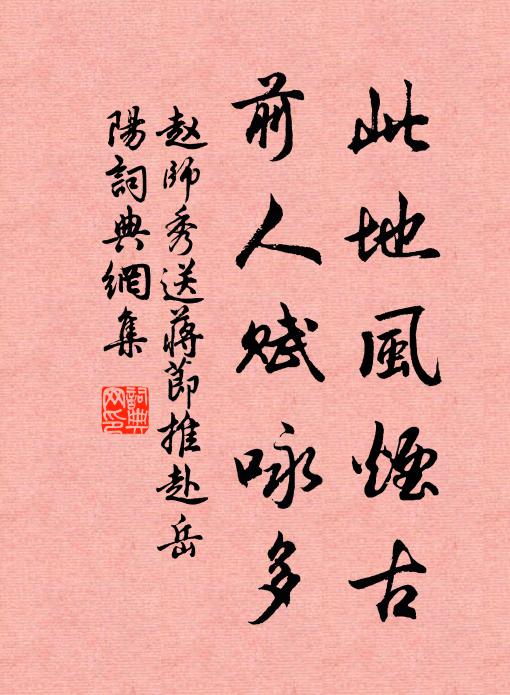 此地風煙古
前人賦咏多
赵師秀送蔣節推赴岳
陽詞典網集
詞典
网印